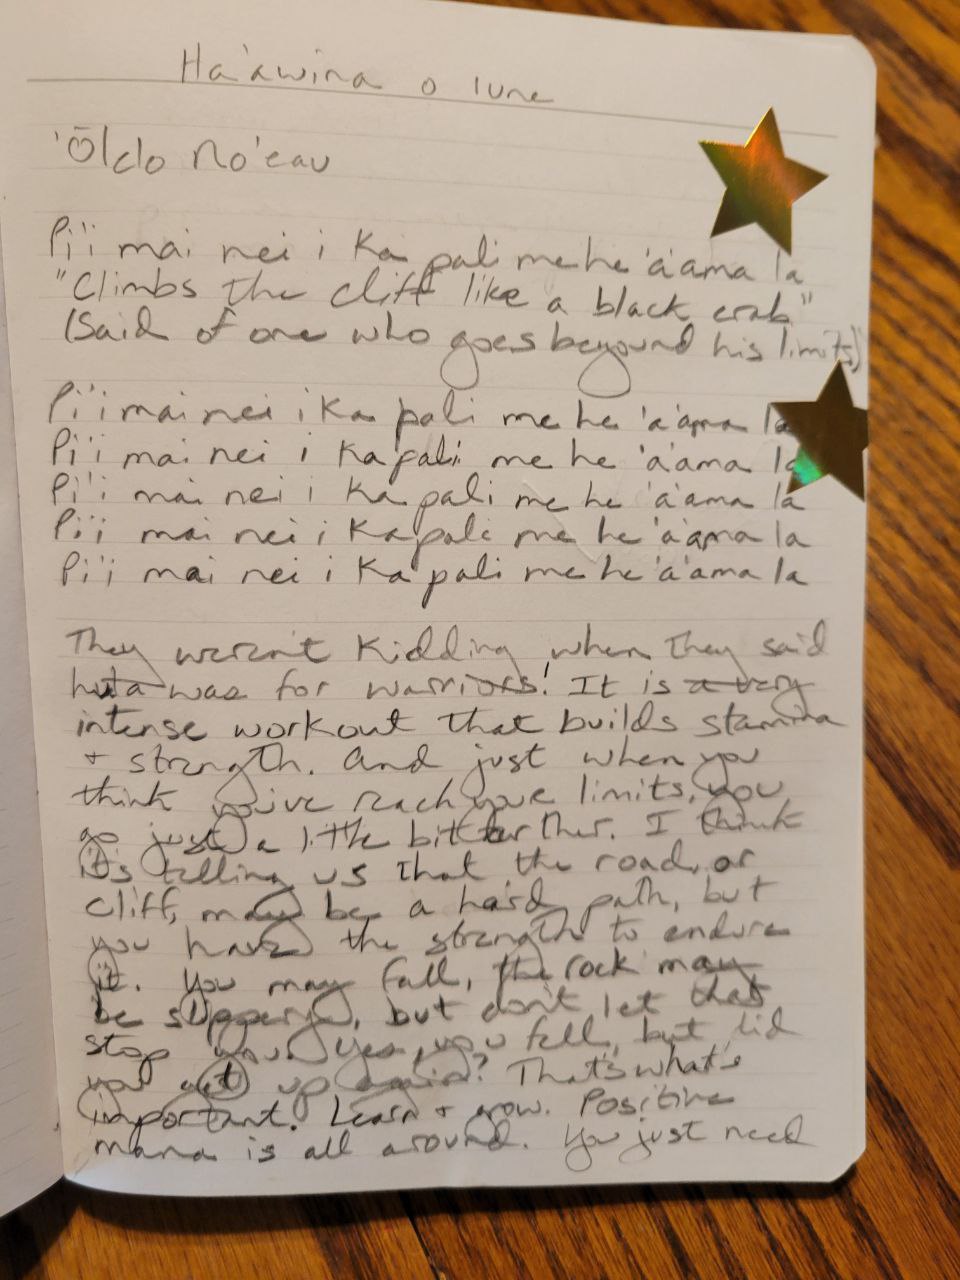 Ha'awina o Iune
'Ōlelo No'eau
Pi'i mai nei i ka pali me he 'a'ama la
"Climbs the cliff like a black crab"
(Said of one who goes beyound his limits)
Pi'i mai nei i ka pali me he 'a'ama la
Pi'i mai nei i ka pali me he 'a'ama la
Pi'i mai nei i ka pali me he 'a'ama la
Pi'i mai nei i ka pali me he 'a'ama la
Pi'i mai nei i ka pali me he 'a'ama la
They weren't kidding when they said
hula was for warriors! It is a very
intense workout that builds stamina
+ strength. And just when you
think you've reach your limits, you
go just a little bit further. I think
it's telling us that the road, or
cliff, may be a hard path, but
you have the strength to endure
it. You may fall, the rock may
be slippery, but don't let that
stop you. Yes, you fell, but did
you get up again? That's what's
important. Learn + grow. Positive
mana is all around. You just need